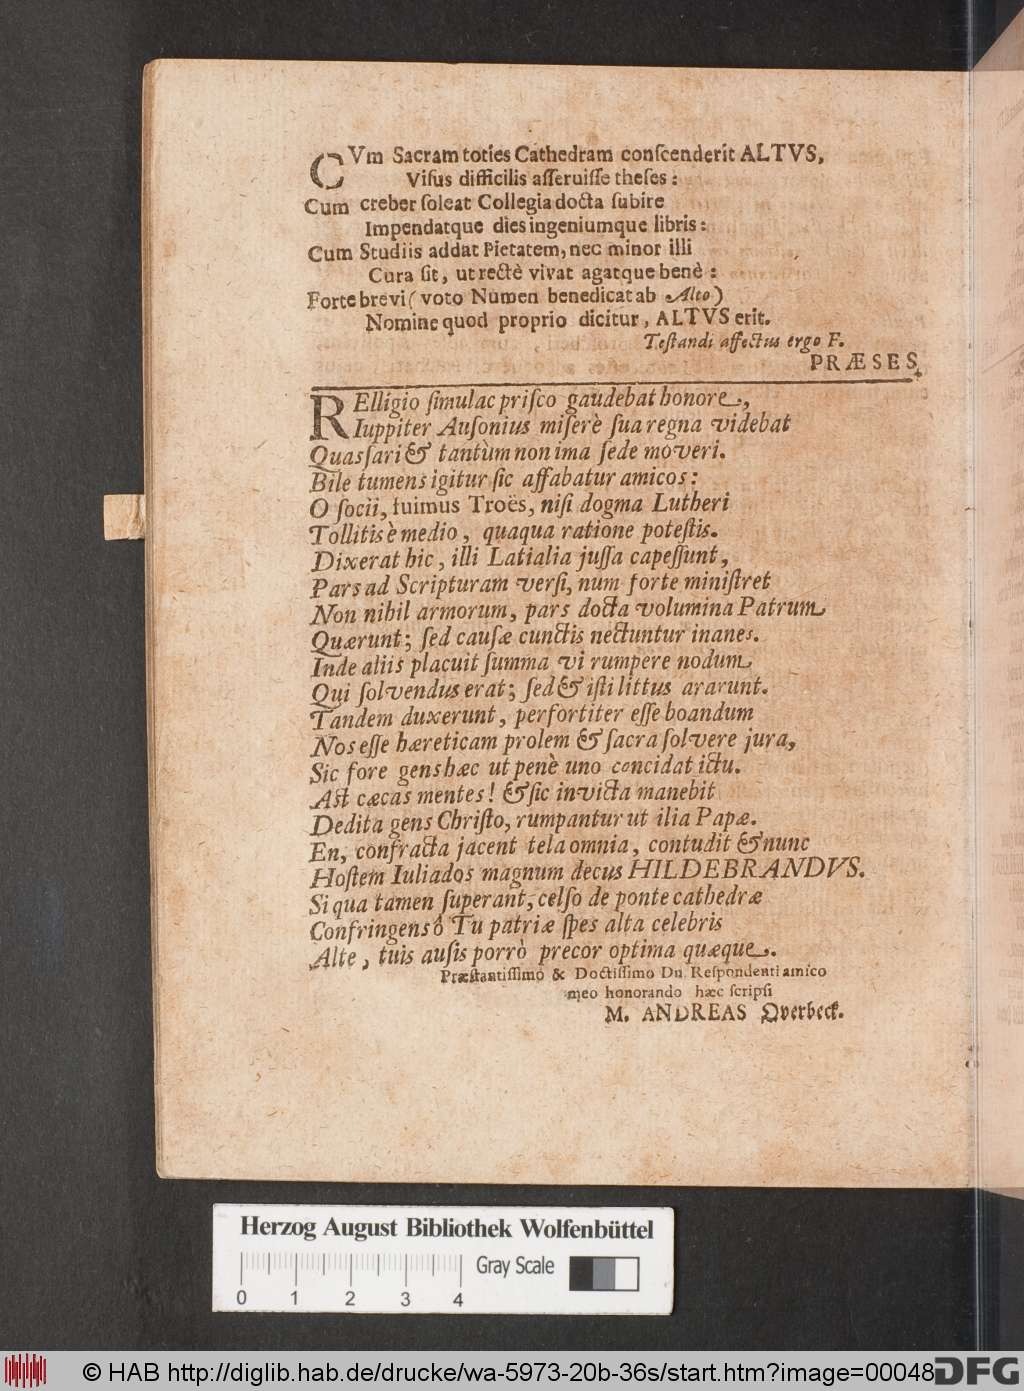 CVm Sacram toties Cathedram conſcenderit ALTVS,
Viſus difficilis aſſeruiſſe theſes:
Cum creber ſoleat Collegia docta ſubire
Impendatque dies ingeniumque libris:
Cum Studiis addat Pietatem, nec minor illi
Cura ſit, ut rectè vivat agatque benè:
Forte brevi (voto Numen benedicat ab Alto)
Nomine quod proprio dicitur, ALTVS erit.
Teſtandi affectus ergo F.
PRÆSES.
RElligio ſimulac priſco gaudebat honore,
Iuppiter Auſonius miſerè ſua regna videbat
Quasſari & tantùm non ima ſede moveri.
Bile tumens igitur ſic affabatur amicos:
O ſocii, fuimus Troës, niſi dogma Lutheri
Tollitis è medio, quaqua ratione poteſtis.
Dixerat hic, illi Latialia juſſa capeſſunt,
Pars ad Scripturam verſi, num forte miniſtret
Non nihil armorum, pars docta volumina Patrum
Quærunt; ſed cauſæ cunctis nectuntur inanes.
Inde aliis placuit ſumma vi rumpere nodum
Qui ſolvendus erat; ſed & iſti littus ararunt.
Tandem duxerunt, perfortiter eſſe boandum
Nos eſſe hæreticam prolem & ſacra ſolvere jura,
Sic fore gens hæc ut penè uno concidat ictu.
Aſt cæcas mentes! & ſic invicta manebit
Dedita gens Chriſto, rumpantur ut ilia Papæ.
En, confracta jacent tela omnia, contudit & nunc
Hoſtem Iuliados magnum decus HILDEBRANDVS.
Si qua tamen ſuperant, celſo de ponte cathedræ
Confringens ô Tu patriæ ſpes alta celebris
Alte, tuis auſis porrò precor optima quæque.
Præſtantiſſimo & Doctiſſimo Dn. Reſpondenti amico
meo honorando hæc ſcripſi
M. ANDREAS Overbeck.
Herzog August Bibliothek Wolfenbüttel
Gray Scale
0 1 2 3 4
© HAB http://diglib.hab.de/drucke/wa-5973-20b-36s/start.htm?image=00048
DFG